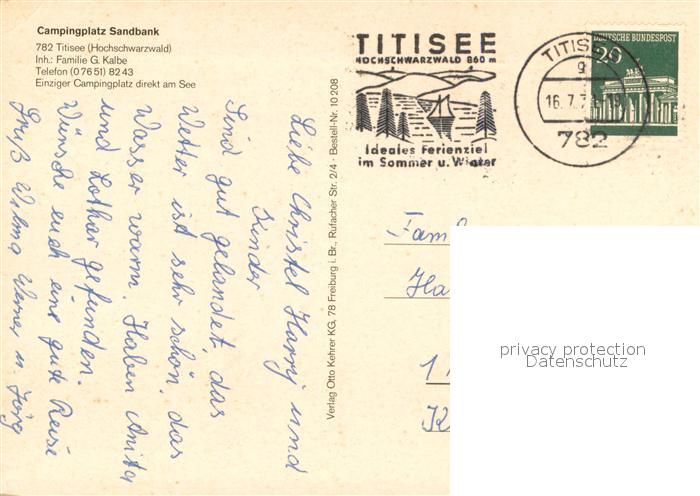 Campingplatz Sandbank
782 Titisee (Hochschwarzwald)
Inh.: Familie G. Kalbe
Telefon (0 76 51) 82 43
Einziger Campingplatz direkt am See
TITISEE
HOCHSCHWARZWALD 860 m
Ideales Ferienziel
im Sommer u. Winter
TITISEE
g
16.7.7
782
DEUTSCHE BUNDESPOST
20
Liebe Christel Harry und
Kinder
Sind gut gelandet, das
Wetter ist sehr schön, das
Wasser warm. Haben Anita
und Lothar gefunden.
Wünsche euch eine gute Reise
Gruß Wilma Werner u. Jörg
Verlag Otto Kehrer KG, 78 Freiburg i. Br., Rufacher Str. 2/4 · Bestell-Nr. 10 208
Fam
Ha
1
K
privacy protection
Datenschutz